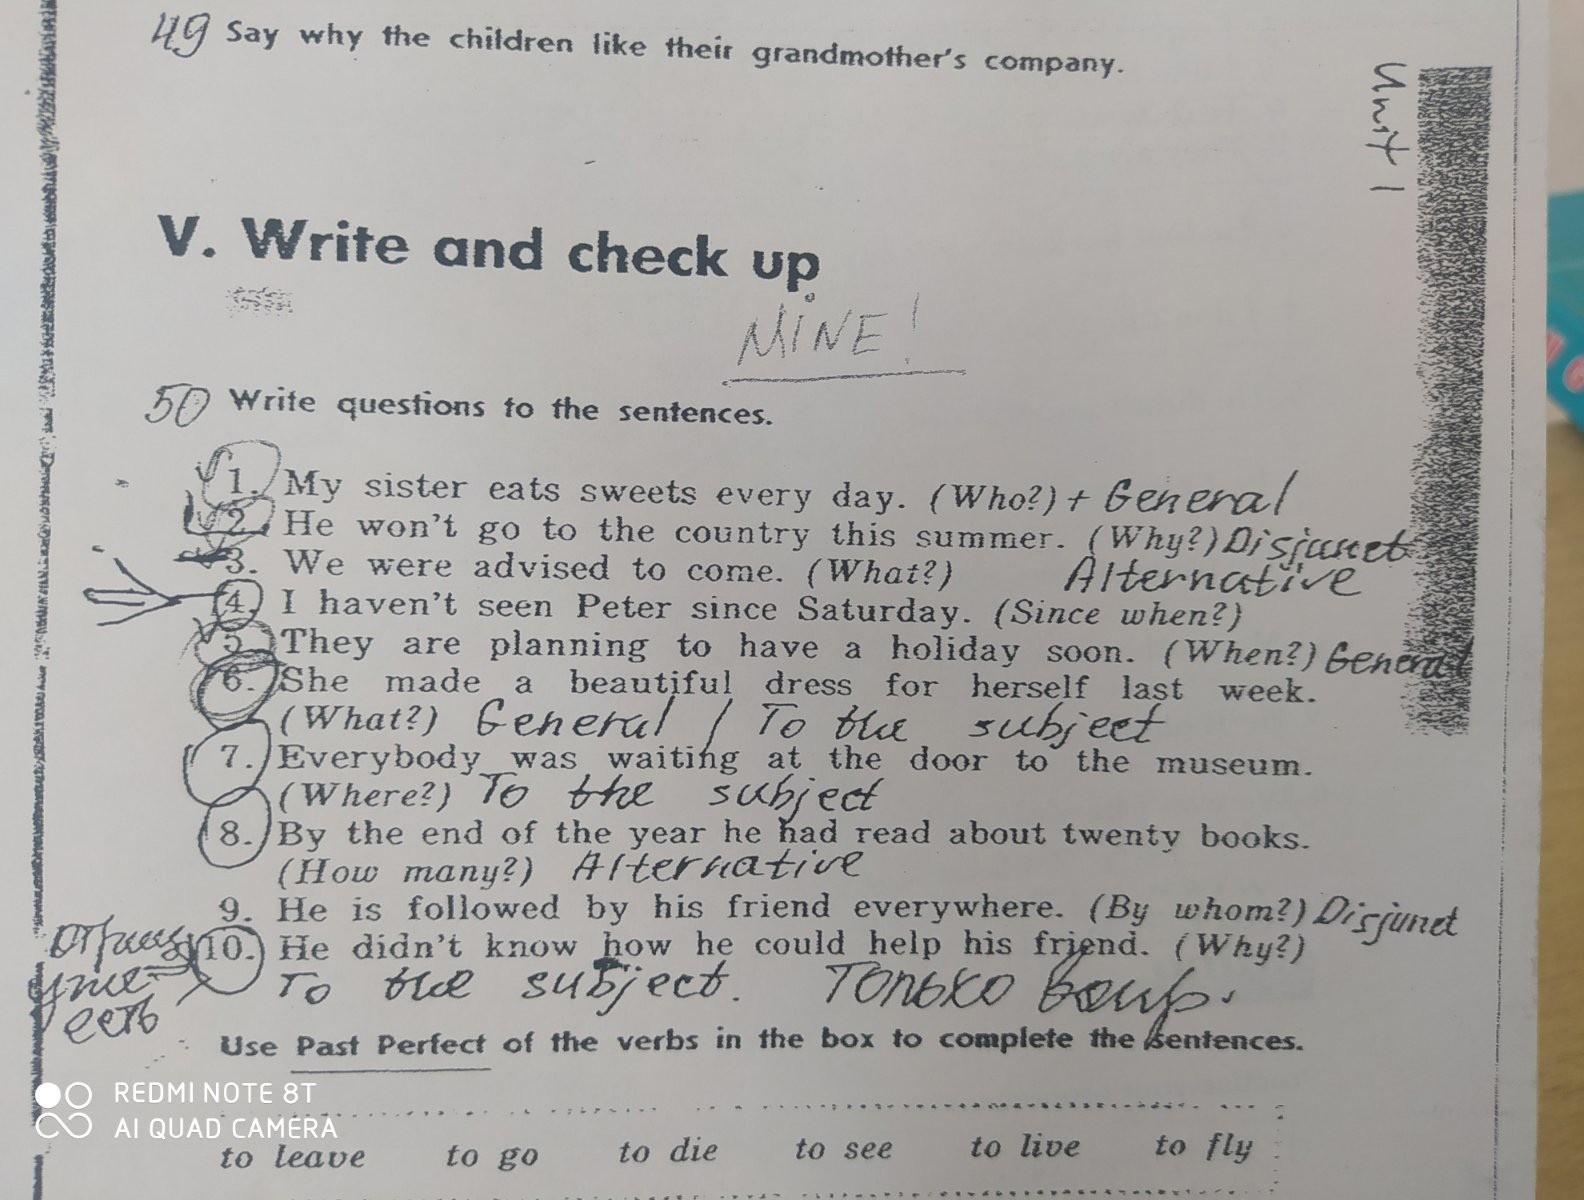 49 Say why the children like their grandmother's company.
Unit 1
V. Write and check up
MINE!
50 Write questions to the sentences.
1. My sister eats sweets every day. (Who?) + General
2. He won't go to the country this summer. (Why?) Disjunct
3. We were advised to come. (What?) Alternative
4. I haven't seen Peter since Saturday. (Since when?)
5. They are planning to have a holiday soon. (When?) General
6. She made a beautiful dress for herself last week.
(What?) General / To the subject
7. Everybody was waiting at the door to the museum.
(Where?) To the subject
8. By the end of the year he had read about twenty books.
(How many?) Alternative
9. He is followed by his friend everywhere. (By whom?) Disjunct
10. He didn't know how he could help his friend. (Why?)
To the subject. Только
уже есть
Use Past Perfect of the verbs in the box to complete the sentences.
REDMI NOTE 8T
AI QUAD CAMERA
to leave to go to die to see to live to fly